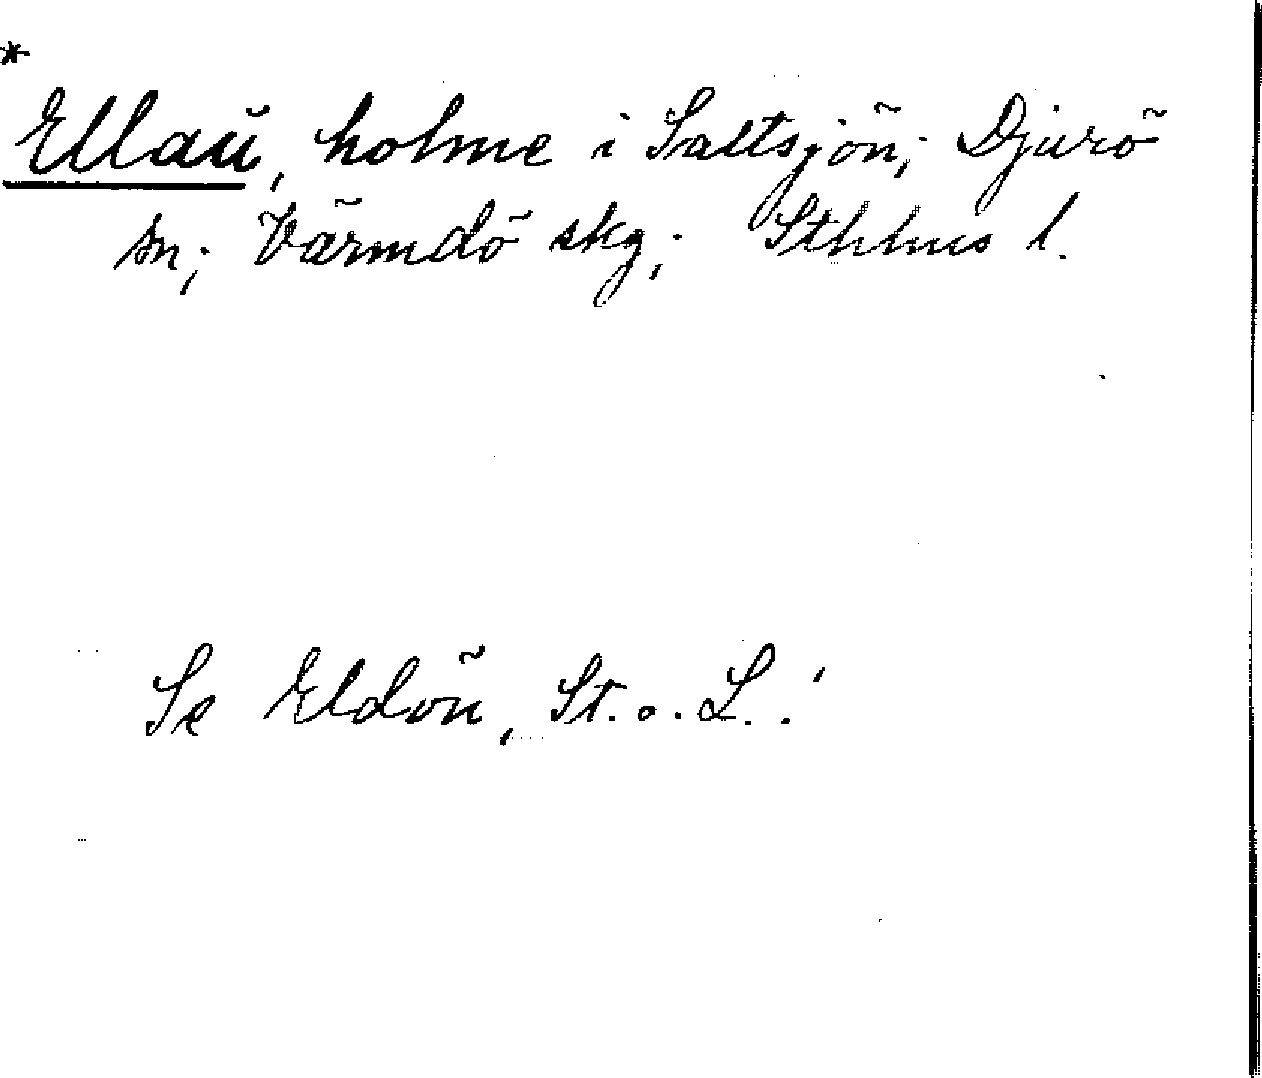 *
Ellaŭ, holme i Saltsjön; Djurö
sn; Värmdö skg; Sthlms l.
Se Eldön, St. o. L.